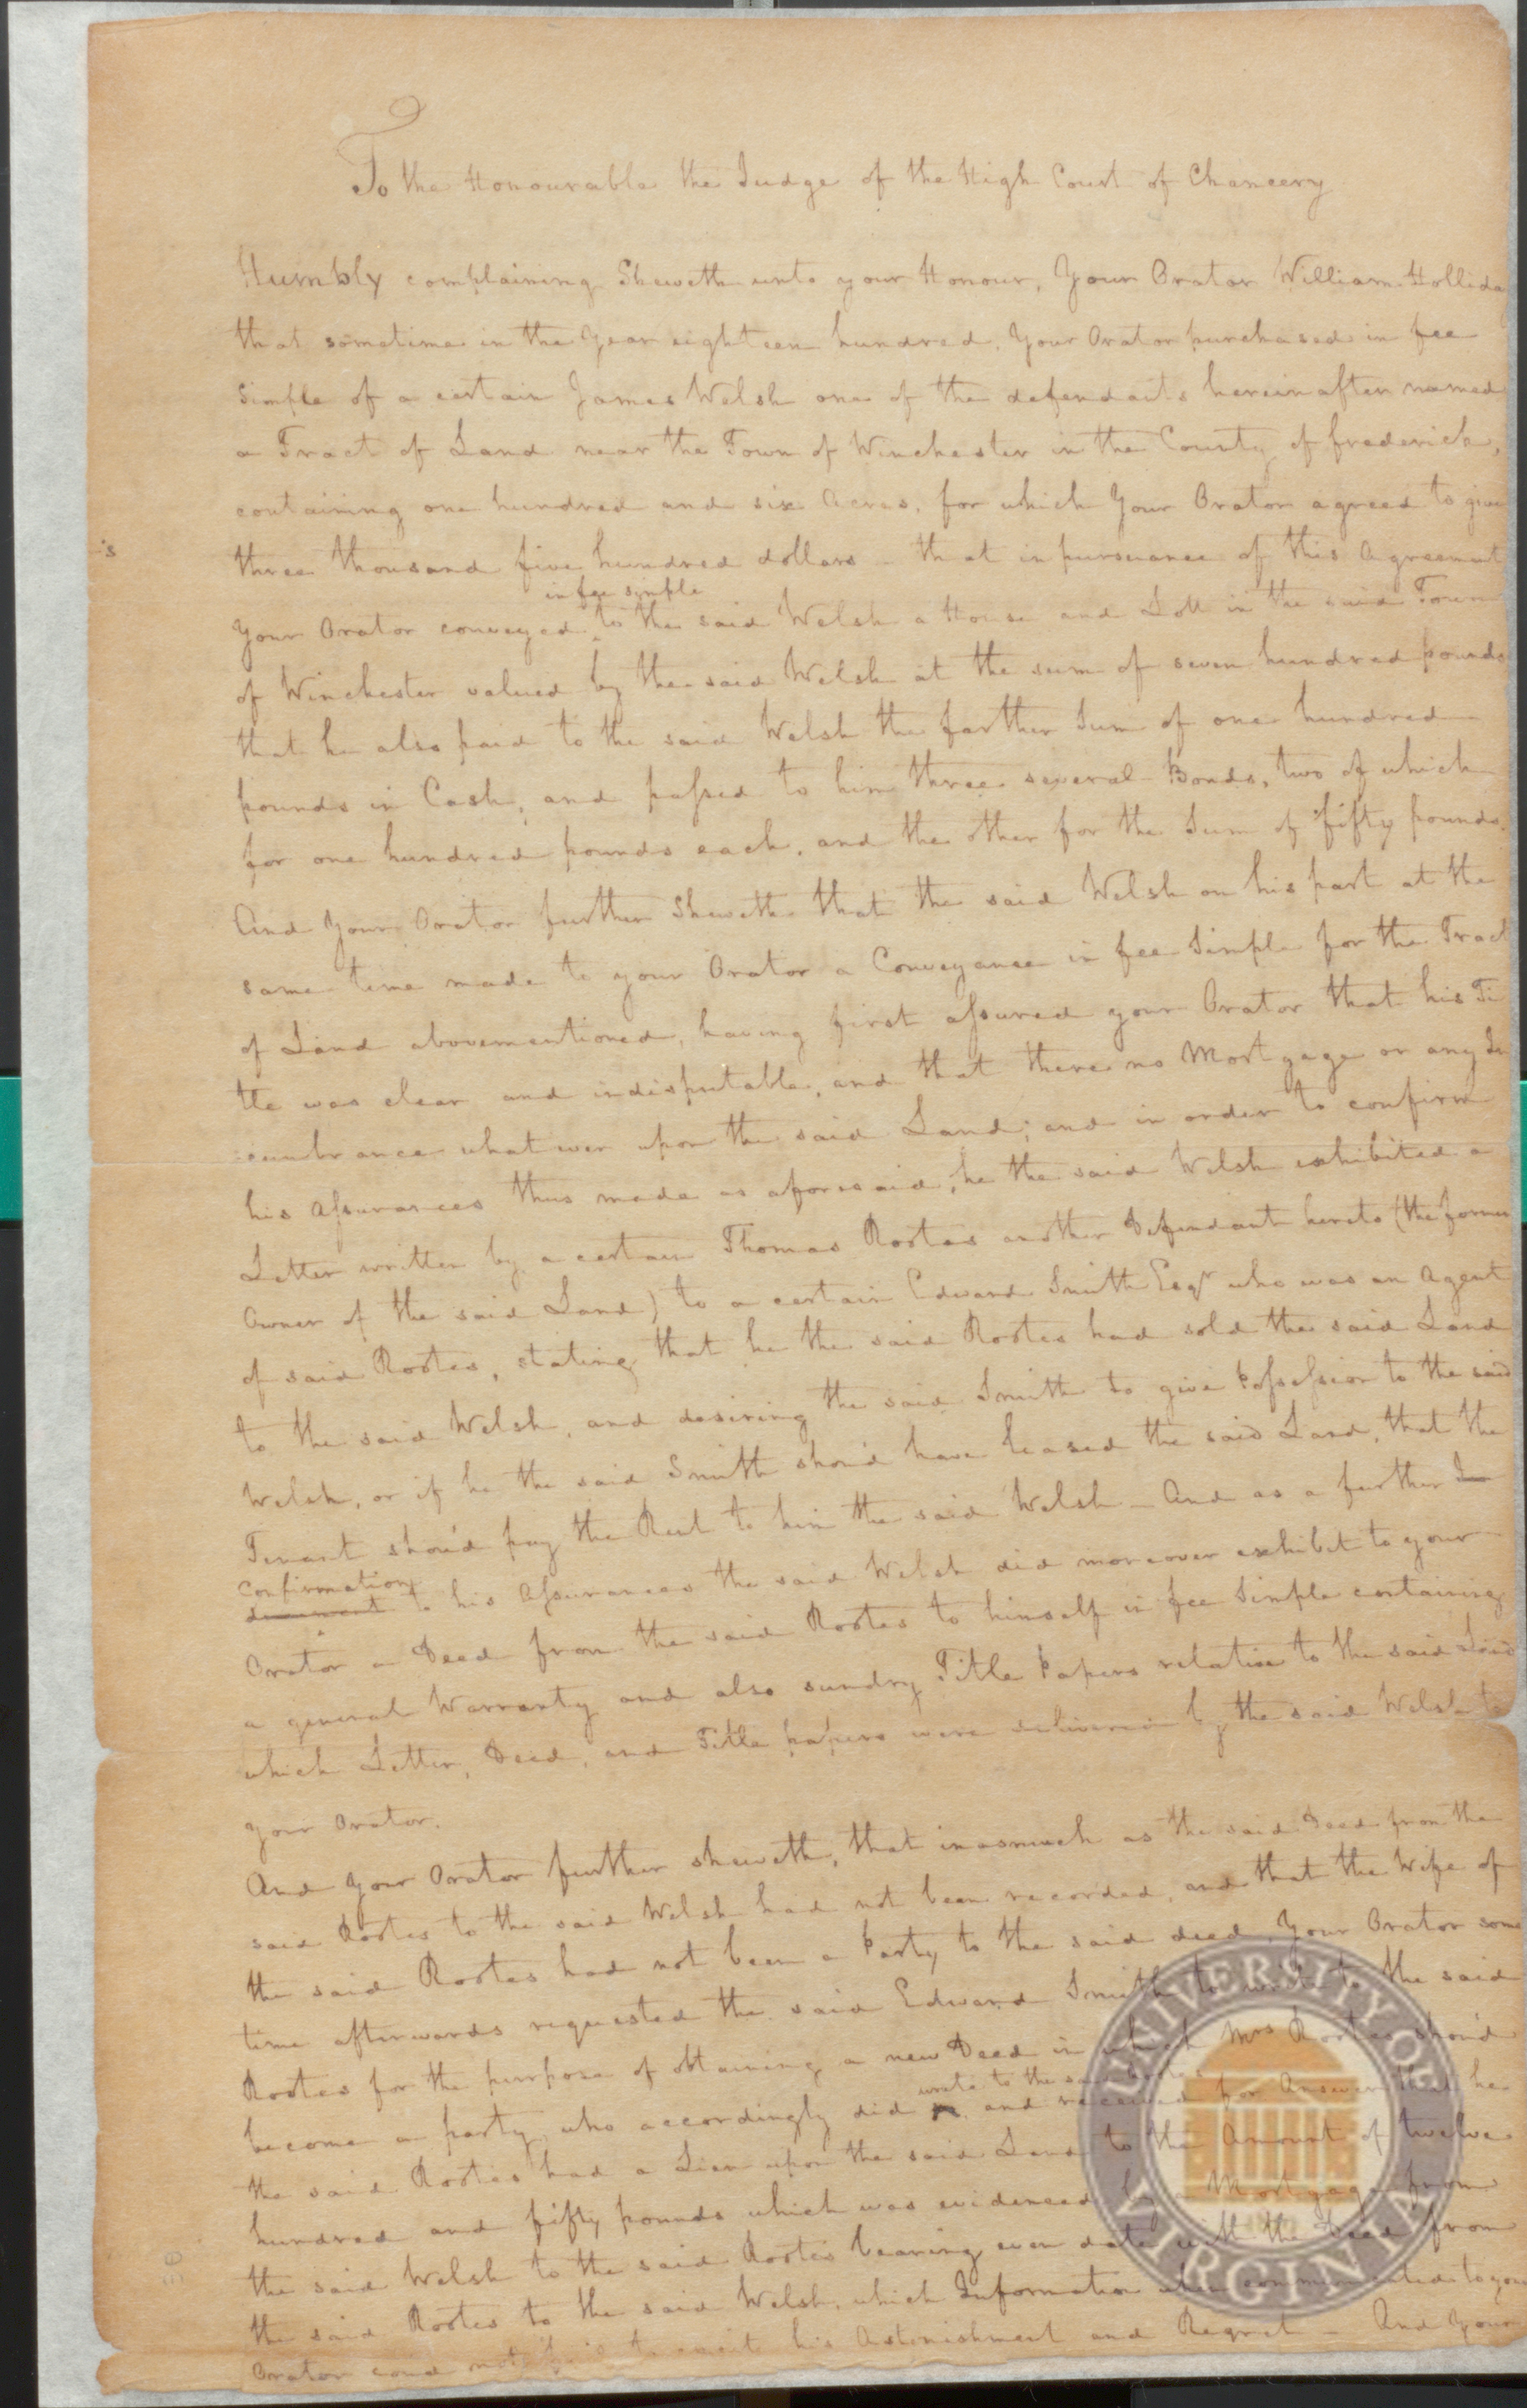 To the Honourable the Judge of the High Court of Chancery
Humbly complaining Sheweth unto your Honour, Your Orator William Hollida
that sometime in the Year eighteen hundred, Your Orator purchased in fee
Simple of a certain James Welsh one of the defendants hereinafter named
a Tract of Land near the Town of Winchester in the County of frederick,
containing one hundred and six Acres, for which Your Orator agreed to give
three thousand five hundred dollars - that in pursuance of this Agreement
in fee simple
Your Orator conveyed to the said Welsh a House and Lott in the said Town
of Winchester valued by the said Welsh at the sum of seven hundred pounds
that he also paid to the said Welsh the farther Sum of one hundred
pounds in Cash, and passed to him three several Bonds, two of which
for one hundred pounds each, and the other for the Sum of fifty pounds.
And Your Orator further Sheweth that the said Welsh on his part at the
same time made to your Orator a Conveyance in fee Simple for the Tract
of Land abovementioned, having first assured your Orator that his Ti
tle was clear and indisputable, and that there no Mortgage or any In
cumbrance whatever upon the said Land; and in order to confirm
his Assurances thus made as aforesaid, he the said Welsh exhibited a
Letter written by a certain Thomas Rootes another Defendant hereto (the former
Owner of the said Land) to a certain Edward Smith Esqr who was an Agent
of said Rootes, stating that he the said Rootes had sold the said Land
to the said Welsh, and desiring the said Smith to give Possession to the said
Welsh, or if he the said Smith shou'd have leased the said Land, that the
Tenant shou'd pay the Rent to him the said Welsh - And as a further
Confirmation
to his Assurances the said Welsh did moreover exhibit to your
Orator a Deed from the said Rootes to himself in fee Simple containing
a general Warranty and also sundry Title Papers relative to the said Land
which Letter, Deed, and Title papers were delivered by the said Welsh to
your Orator.
And Your Orator further sheweth, that inasmuch as the said Deed from the
said Rootes to the said Welsh had not been recorded, and that the Wife of
the said Rootes had not been a Party to the said deed, Your Orator some
time afterwards requested the said Edward Smith to write to the said
Rootes for the purpose of obtaining a new Deed in which Mrs Rootes shou'd
wrote to the said Rootes
become a party, who accordingly did and received for Answer that he
the said Rootes had a Lien upon the said Land to the Amount of twelve
hundred and fifty pounds which was evidenced by a Mortgage from
the said Welsh to the said Rootes bearing even date with the Deed from
the said Rootes to the said Welsh, which Information when communicated to your
Orator cou'd not fail to excite his Astonishment and Regret - And Your
's
UNIVERSITY OF VIRGINIA